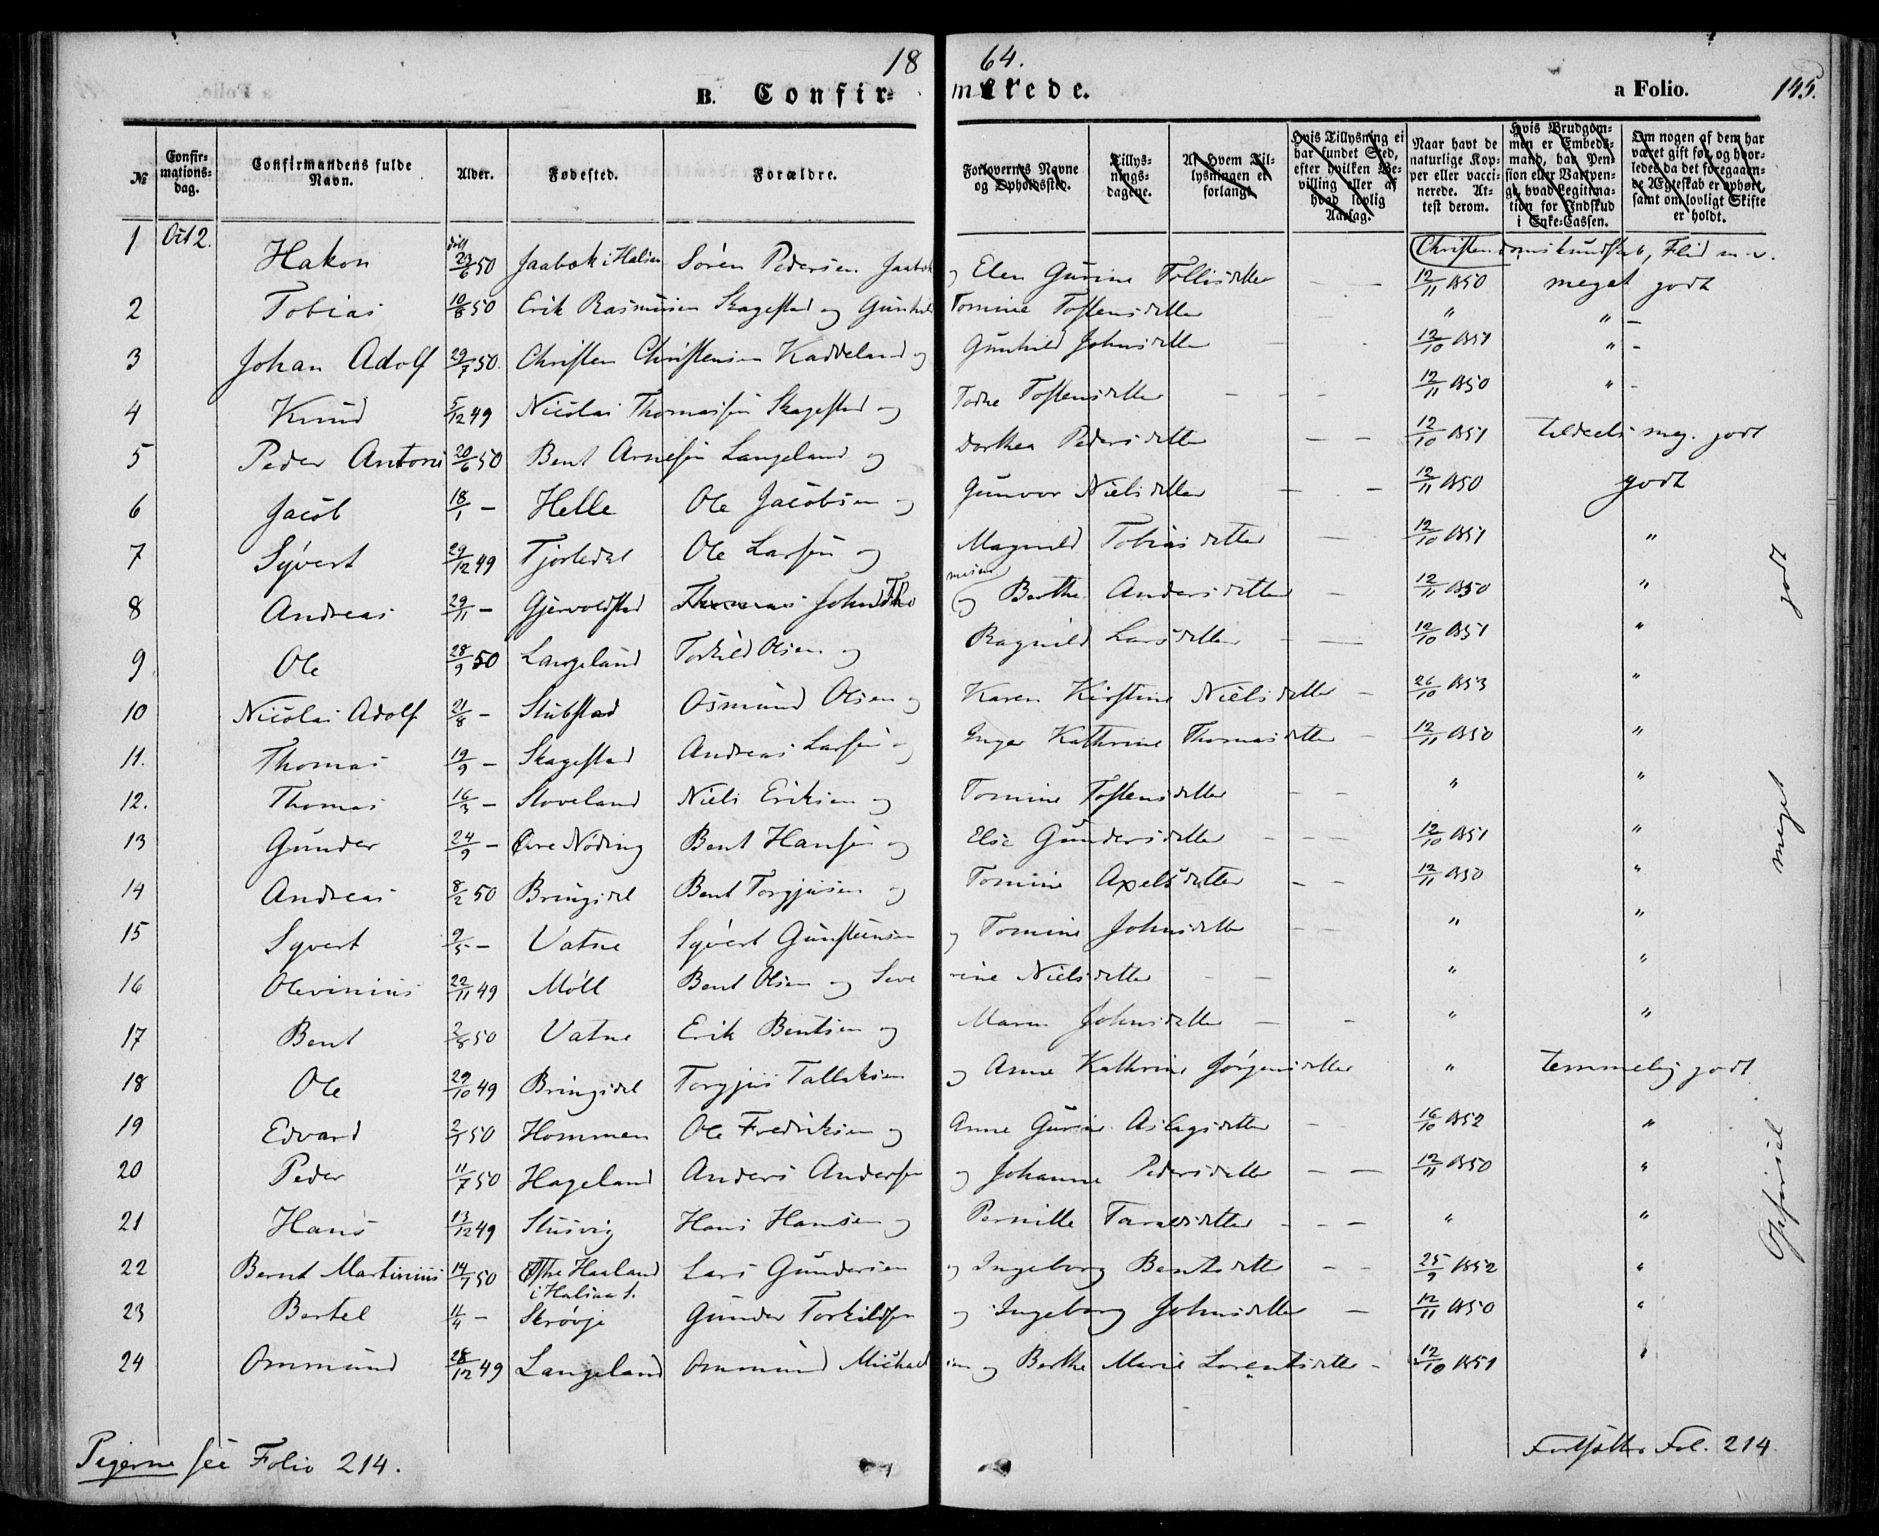 18 64.
B. Confir- merede. a Folio. 145.
№ Confir-mations-dag. Confirmandens fulde Navn. Alder. Fødested. Forældre. Forlovernes Navne og Opholdssted. Tillys-nings-dagene. Af Hvem Til-lysningen er forlangt. Hvis Tillysning ei har fundet Sted, efter hvilken Be-villing eller af hvad lovlig Aarsag. Naar havt de naturlige Kop-per eller vacci-nerede. At-test derom. Hvis Brudgom-men er Embeds-mand, har Pen-sion eller Vartpen-ge, hvad Legitima-tion for Indskud i Enke-Cassen. Om nogen af dem har været gift før, og hvor-ledes da det foregaaen-de Ægteskab er ophørt, samt om lovligt Skifte er holdt.
Christendomskundskab, Flid m.v.
1 Oct 2. Hakon 23/6 50 Jaabæk i Halsaa Søren Pedersen Jaabæk og Elen Gurine Tollisdatter — — 12/11 1850 meget godt
2 Tobias 10/8 50 Erik Rasmussen Skagestad og Gunhild Tomine Tostensdatter — " " –
3 Johan Adolf 29/7 50. Christen Christensen Kaddeland og Gunhild Johnsdatter — 12/10 1851 " –
4 Knud 5/12 49 Nicolai Thomassen Skagestad og Tostensdatter — — 12/11 1850 " –
5 Peder Antoni 20/6 50 Bent Arnesen Langeland og Dorthea Pedersdatter — — 12/10 1851 tildeels meg. godt
6 Jacob 18/1 – Helle Ole Jacobsen og Gunvor Nielsdatter — — 12/11 1850 godt
7 Syvert 29/12 49 Tjomsdal Ole Larsen og Magnild Tobiasdatter — 12/10 1851 "
8 Andreas 29/11 – Gjervoldstad Thomas John Tho massen og Berthe Andersdatter — 12/11 1850 "
9 Ole 28/9 50 Langeland Torkild Olsen og Ragnild Larsdatter — — 12/10 1851 "
10 Nicolai Adolf 21/8 – Stubstad Osmund Olsen og Karen Kirstine Nielsdatter — 26/10 1853 "
11. Thomas 19/9 – Skagestad Andreas Larsen og Inger Kathrine Thomasdatter — 12/11 1850 "
12. Thomas 16/3 – Stoveland Niels Eriksen og Tomine Tostensdatter — — " "
13 Gunder 24/9 – Øvre Nøding Bent Hansen og Else Gundersdatter — — — 12/10 1851 "
14 Andreas 8/2 50 Bringsdal Bent Torgjusen og Tomine Axelsdatter — — 12/11 1850 "
15 Syvert 9/5 – Vatne Syvert Gunsteinsen og Tomine Johnsdatter — — " "
16 Olevinius 22/11 49 Møll Bent Olsen og Seve rine Nielsdatter — — " "
17 Bent 2/8 50 Vatne Erik Bentsen og Maren Johnsdatter — — " "
18 Ole 29/10 49 Bringsdal Torgjus Tallaksen og Anne Kathrine Jørgensdatter " temmelig godt
19 Edvard 2/1 50 Hommen Ole Fredriksen og Anne Gurine Aslagsdatter — 16/10 1852 "
20 Peder 11/7 50 Hageland Anders Andersen og Johanne Pedersdatter — — 12/11 1850 "
21 Hans 13/12 49 Stusvig Hans Hansen og Pernille Taraldsdatter — — — " "
22 Bernt Martinius 14/1 50 Østre Haaland i Halsaa S. Lars Gundersen og Ingeborg Bentsdatter — — 25/9 1852 "
23 Bertel 11/4 – Skrøvje Gunder Torkildsen og Ingeborg Johnsdatter — 12/11 1850 "
24 Ommund 28/12 49 Langeland Ommund Michael sen og Berthe Marie Lorentsdatter – 12/10 1851 "
Opførsel — meget godt
Pigerne see Folio 214.
Fortsættes Fol. 214